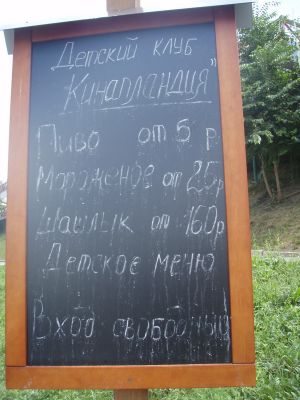 „Детский клуб
Кинапландия”
Пиво от 5 р
Мороженое от 25р
Шашлык от 160р
Детское меню
Вход свободный